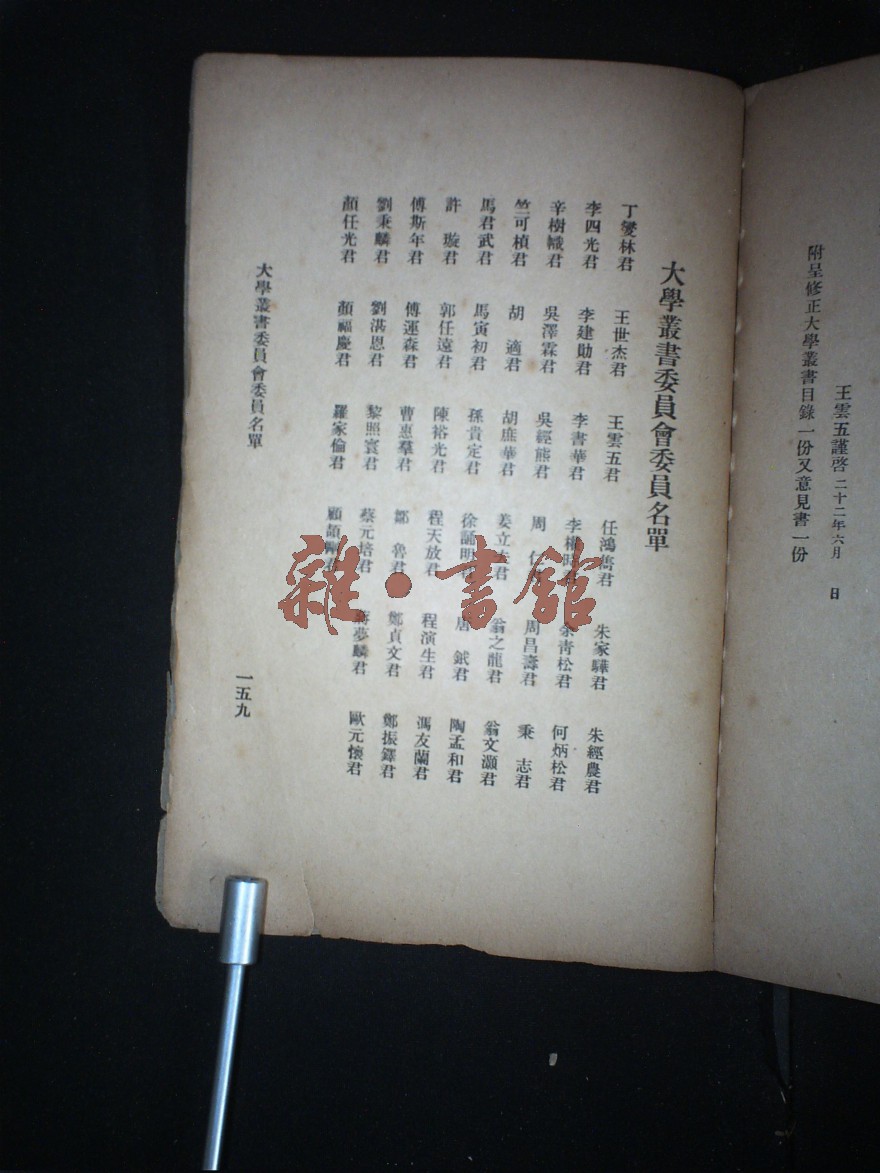 附呈修正大學叢書目錄一份又意見書一份
王雲五謹啓 二十二年六月 日
大學叢書委員會委員名單
丁燮林君 王世杰君 王雲五君 任鴻雋君 朱家驊君 朱經農君
李四光君 李建勛君 李書華君 李權時君 余青松君 何炳松君
辛樹幟君 吳澤霖君 吳經熊君 周 仁君 周昌壽君 秉 志君
竺可楨君 胡 適君 胡庶華君 姜立夫君 翁之龍君 翁文灝君
馬君武君 馬寅初君 孫貴定君 徐誦明君 唐 鉞君 陶孟和君
許 璇君 郭任遠君 陳裕光君 程天放君 程演生君 馮友蘭君
傅斯年君 傅運森君 曹惠羣君 鄒 魯君 鄭貞文君 鄭振鐸君
劉秉麟君 劉湛恩君 黎照寰君 蔡元培君 蔣夢麟君 歐元懷君
顏任光君 顏福慶君 羅家倫君 顧頡剛君
大學叢書委員會委員名單
一五九
雜·書館